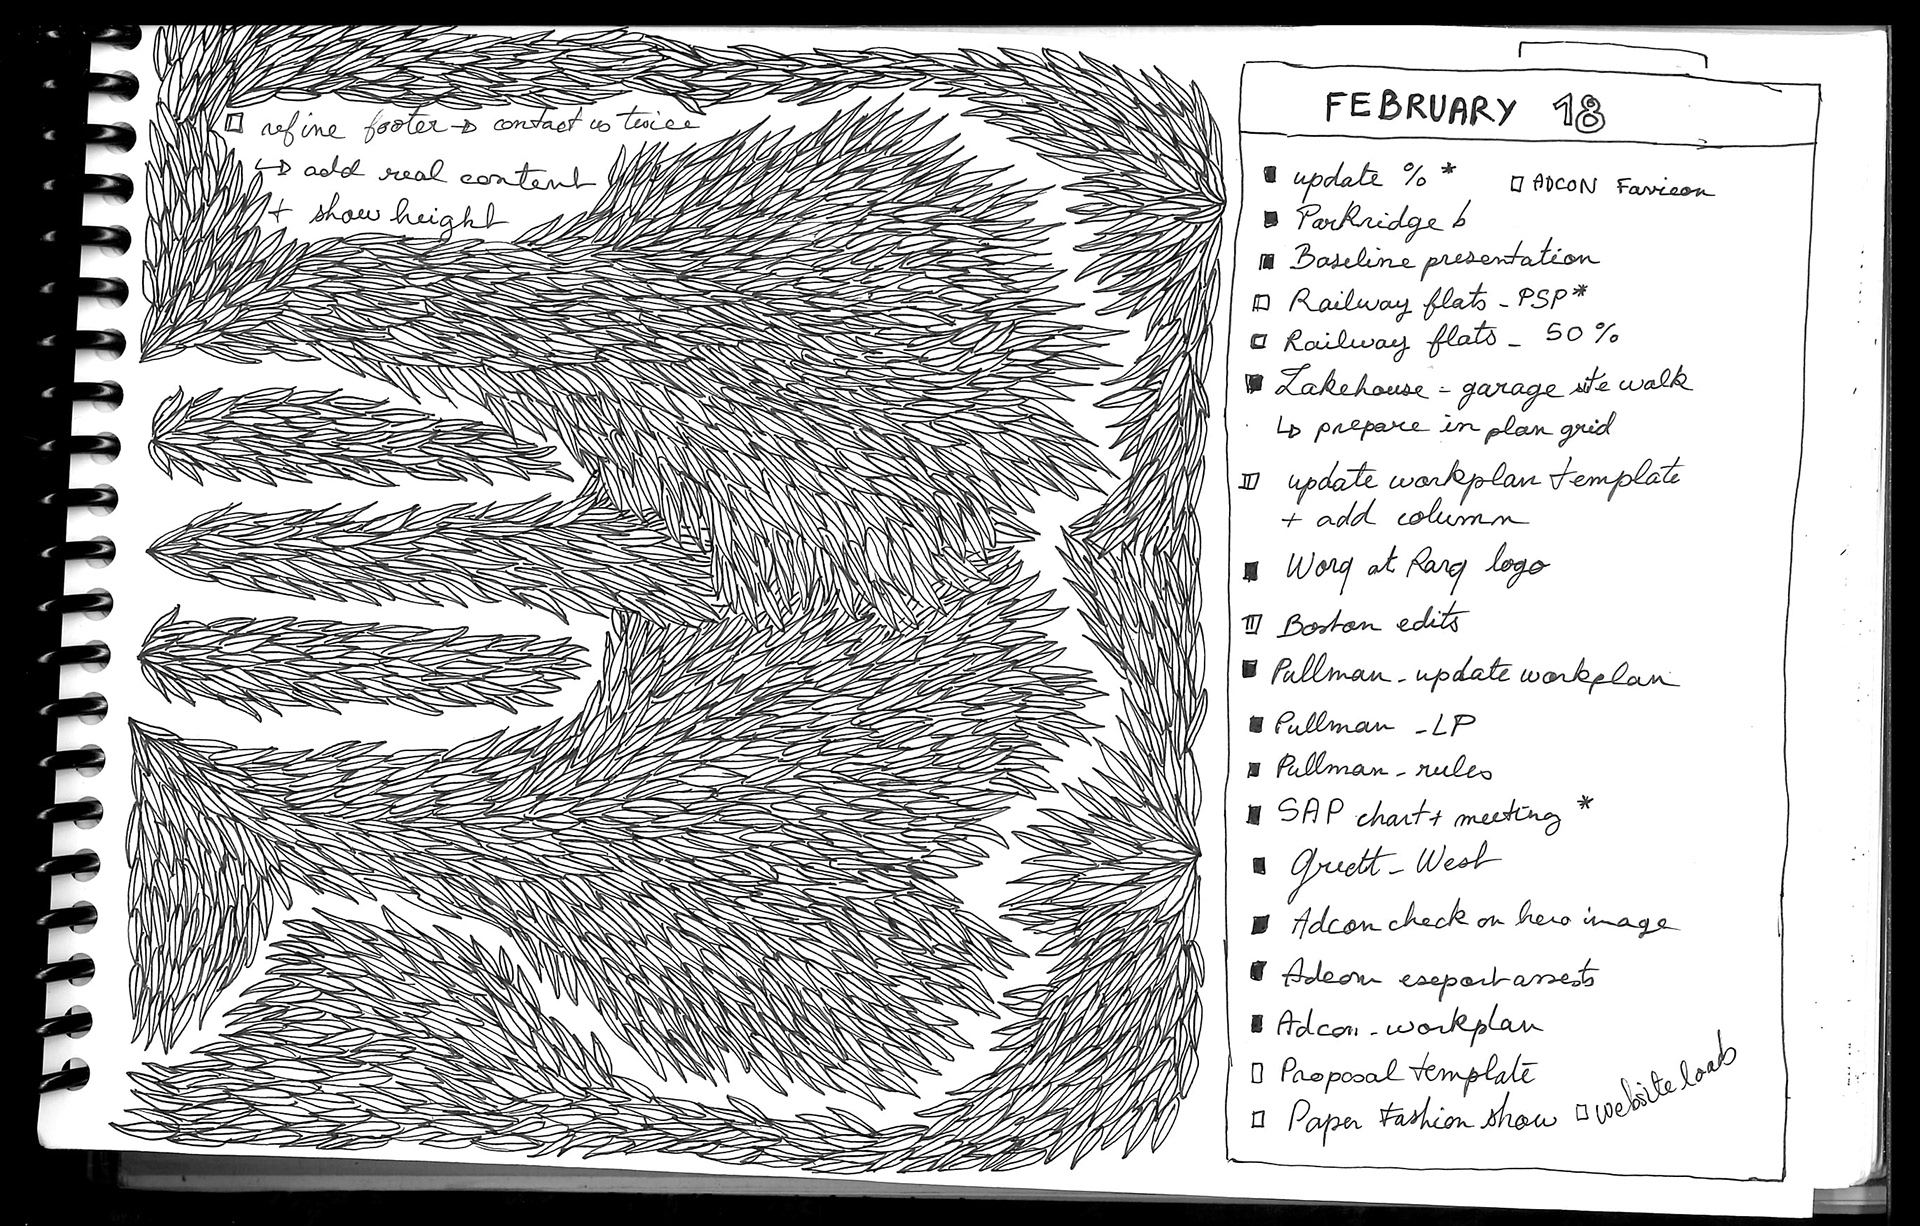 refine footer → contact us twice
↳ add real content
+ show height
FEBRUARY 18
update % *
ADCON Favicon
Parkridge b
Baseline presentation
Railway flats - PSP*
Railway flats - 50%
Lakehouse - garage site walk
↳ prepare in plan grid
update workplan template
+ add column
Worq at Rarq logo
Boston edits
Pullman - update workplan
Pullman - LP
Pullman - rules
SAP chart + meeting *
West
Adcon check on hero image
Adcon export assests
Adcon - workplan
Proposal template
Paper Fashion show
website loads